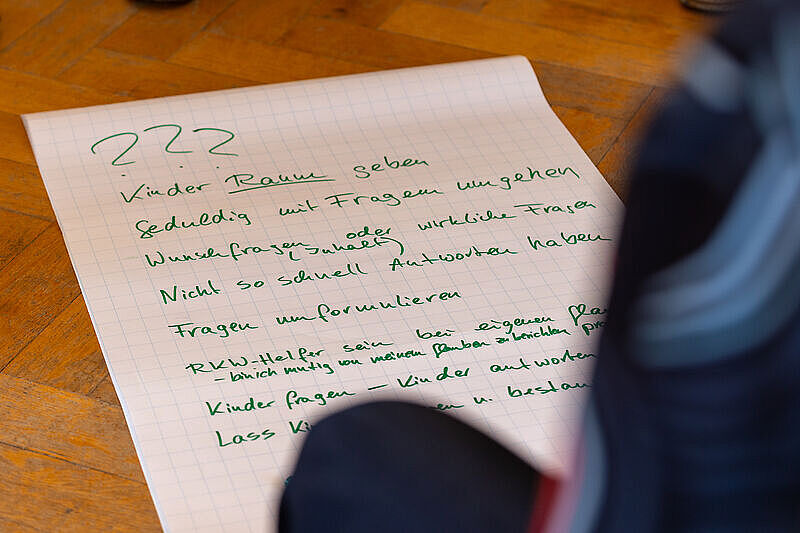 ???
Kinder Raum geben
Geduldig mit Fragen umgehen
Wunschfragen oder wirkliche Fragen
(Inhalt)
Nicht so schnell Antworten haben
Fragen umformulieren
RKW-Helfer sein bei eigenen
- bin ich mutig von meinem Glauben zu berichten
Kinder fragen - Kinder antworten
Lass u.